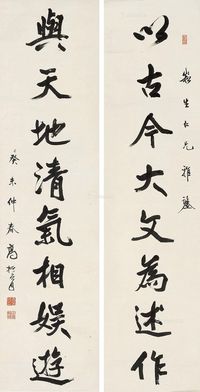 以古今大文為述作
生仁兄雅
與天地清氣相娛遊
癸未仲春